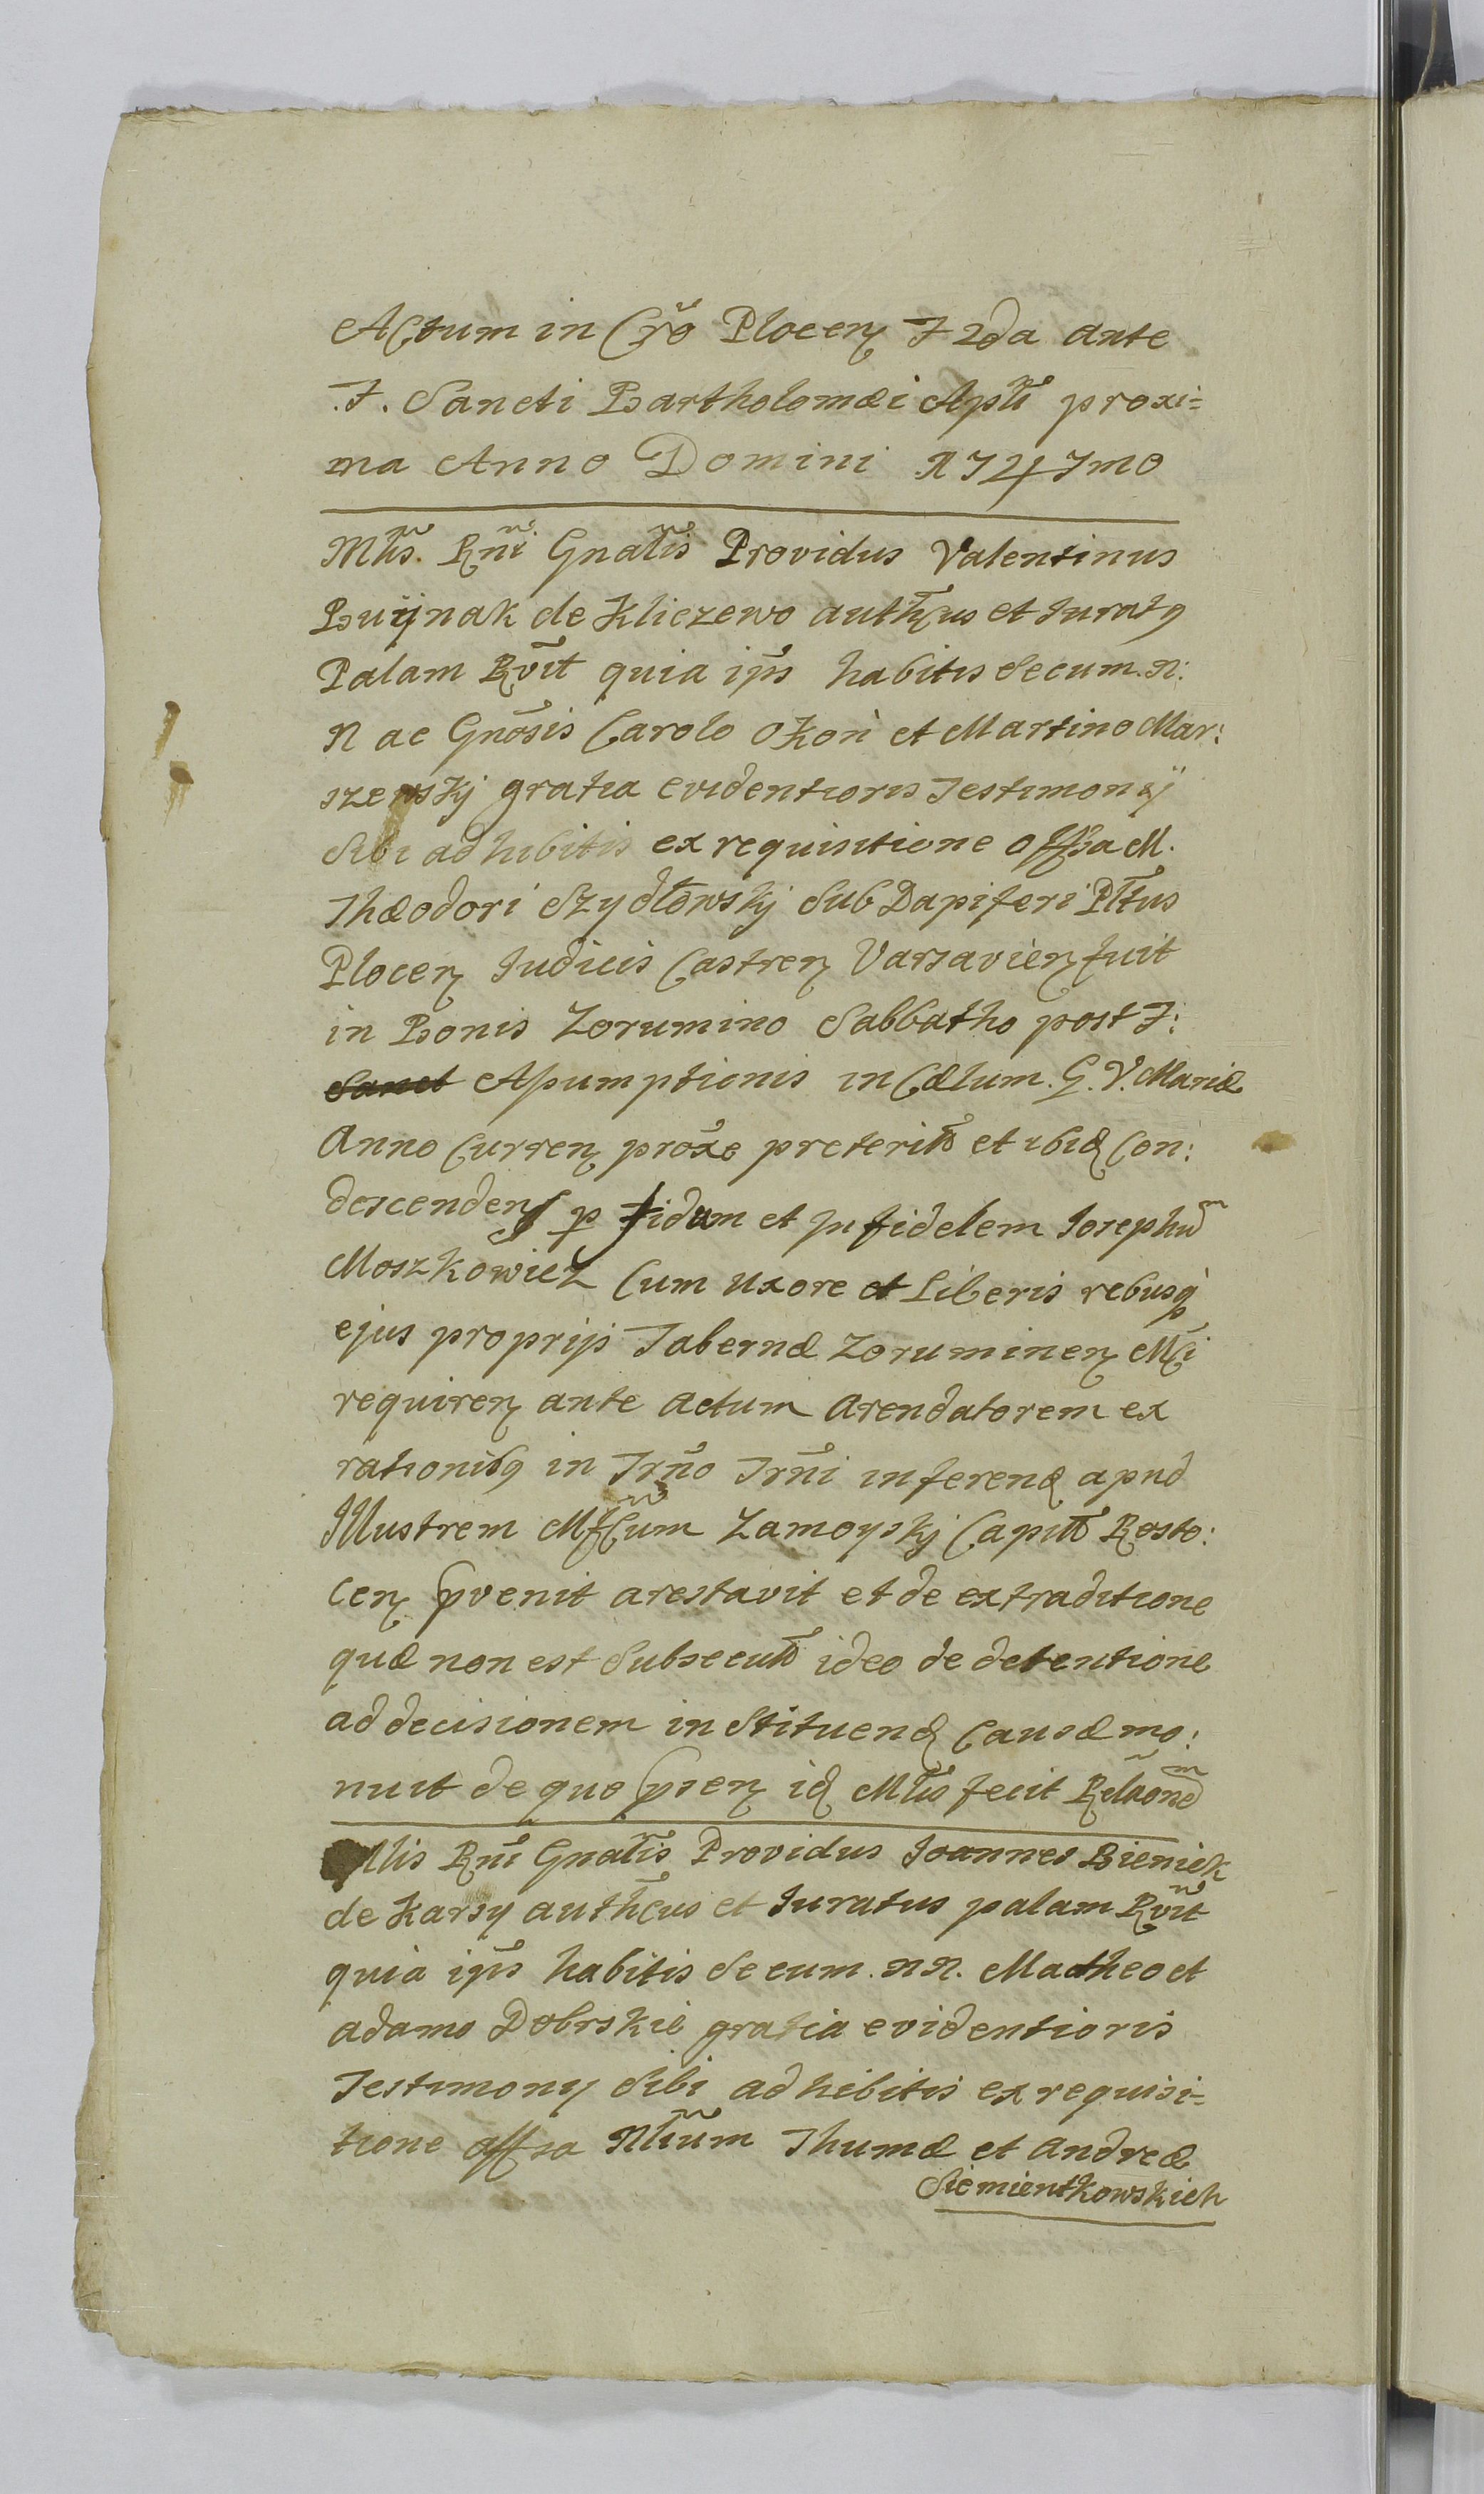 Actum in Cro Plocen F 2da ante
F. Sancti Bartholomæi Apli proxi=
ma Anno Domini 1747mo
Mlis. Rni Gnalis Providus Valentinus
Buynak de Kliczewo authcus et Juratq
Palam Rvit quia ips habitis Secum. N:
N ac Gnosis Carolo Okoń et Martino Mar:
szewskj gratia evidentioris Testimonÿ
Sibi adhibitis ex requisitione Offsa M.
Thæodori Szydłowskj Sub Dapiferi Pltus
Plocen Judicis Castren Varsavien fuit
in Bonis Zorumino Sabbatho post F:
Sanct Assumptionis in Cælum. G. V. Mariæ
Anno Curren proxe preterito et ibid Con:
descenden p fidum et Infidelem Josephum
Moszkowicz Cum Uxore et Liberis rebusq
ejus proprijs Tabernæ Zoruminen Mci
requiren ante actum Arendatorem ex
rationibq in Trno Trni inferend apud
Illustrem Mfcum Zamoyskj Capitto Rosto:
cen pvenit arestavit et de extraditione
quæ non est Subsecuta ideo de detentione
ad decisionem in Stituend Causæ mo:
nuit de quo psen id Mlis fecit Rlaonem
Mlis Rni Gnalis Providus Joannes Bieniek
de Karsy authcus et Juratus palam Rvit
quia ips habitis Secum. NN. Matheo et
adamo Dobrskie gratia evidentioris
Testimony Sibi adhibitis ex requisi=
tione offsa Nlium Thumæ et Andreæ
Siemientkowskich